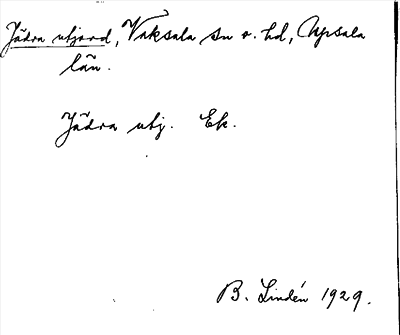 Jädra utjord, Vaksala sn o. hd, Upsala
län.
Jädra utj. Ek.
B. Lindén 1929.